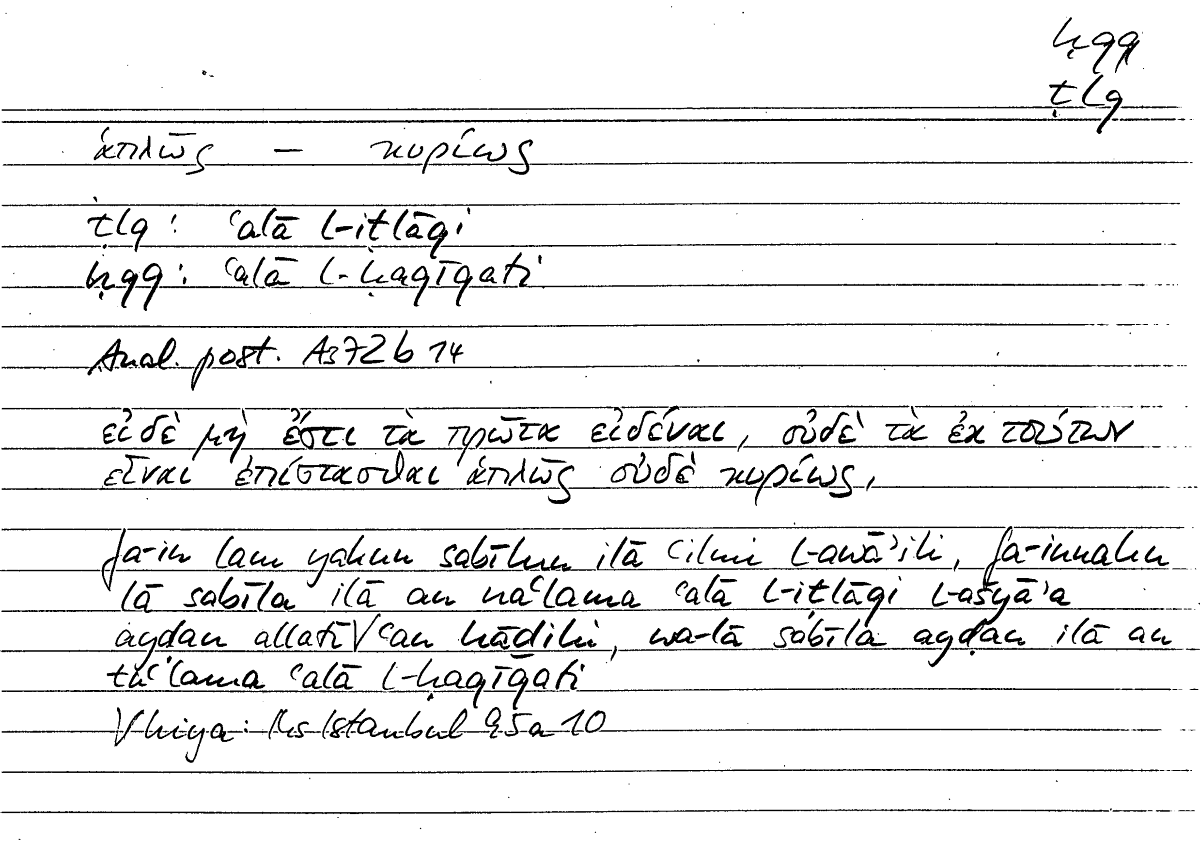 ḥqq
ṭlq
ἁπλῶς — κυρίως
ṭlq: ʿalā l-iṭlāqi
ḥqq: ʿalā l-ḥaqīqati
Anal. post. A3 72 b 14
εἰ δὲ μὴ ἔστι τὰ πρῶτα εἰδέναι, οὐδὲ τὰ ἐκ τούτων
εἶναι ἐπίστασθαι ἁπλῶς οὐδὲ κυρίως,
fa-in lam yakun sabīlun ilā ʿilmi l-awāʾili, fa-innahu
lā sabīla ilā an naʿlama ʿalā l-iṭlāqi l-ašyāʾa
ayḍan allatī V ʿan hādihi, wa-lā sabīla ayḍan ilā an
tuʿlama ʿalā l-ḥaqīqati
V hiya: Hs Istanbul 95a10